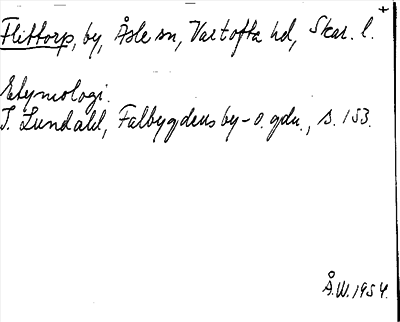 +
Flittorp, by, Åsle sn, Vartofta hd, Skar. l.
Etymologi.
I. Lundahl, Falbygdens by- o. gdn., s. 153.
Å.W. 1954.